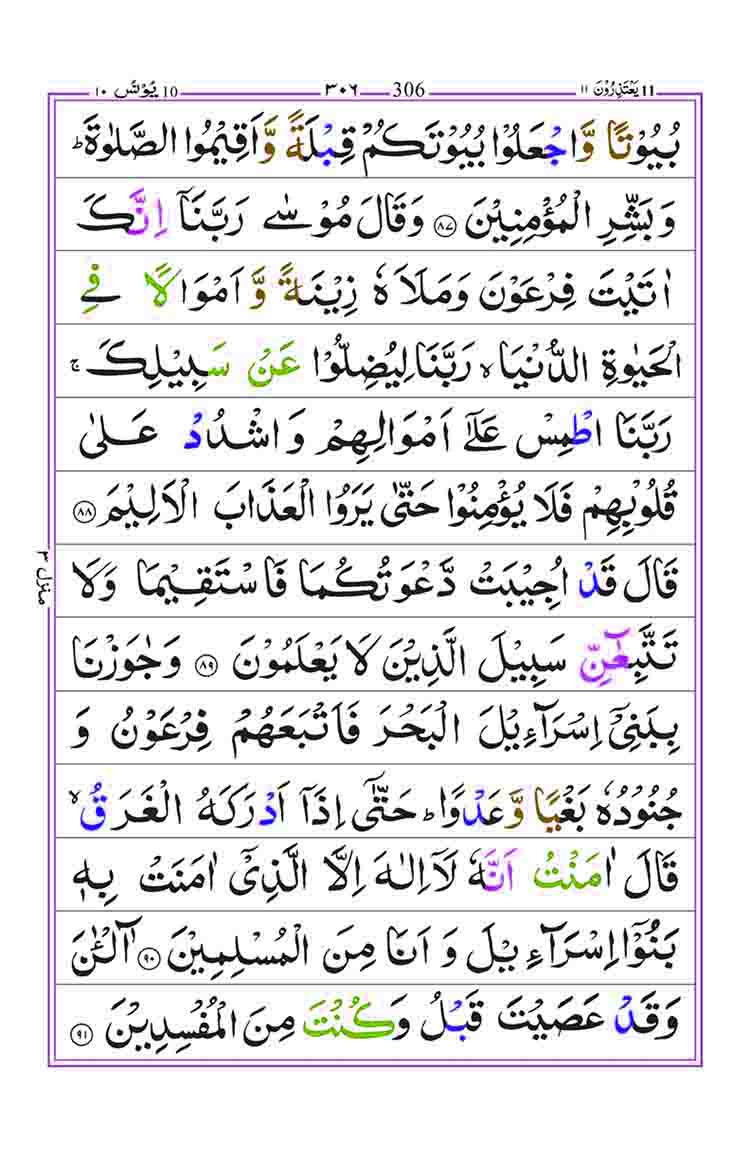 یَعْتَذِرُوْنَ ۱۱ 11 306 ۳۰۶ 10 یُوْنُسَ ۱۰
بُیُوْتًا وَّاجْعَلُوْا بُیُوْتَكُمْ قِبْلَةً وَّاَقِیْمُوا الصَّلٰوةَؕ
وَبَشِّرِ الْمُؤْمِنِیْنَ ۸۷ وَقَالَ مُوْسٰی رَبَّنَاۤ اِنَّكَ
اٰتَیْتَ فِرْعَوْنَ وَمَلَاَهٗ زِیْنَةً وَّ اَمْوَالًا فِی
الْحَیٰوةِ الدُّنْیَا ۙ رَبَّنَا لِیُضِلُّوْا عَنْ سَبِیْلِكَ ۚ
رَبَّنَا اطْمِسْ عَلٰۤی اَمْوَالِهِمْ وَاشْدُدْ عَلٰی
قُلُوْبِهِمْ فَلَا یُؤْمِنُوْا حَتّٰی یَرَوُا الْعَذَابَ الْاَلِیْمَ ۸۸
قَالَ قَدْ اُجِیْبَتْ دَّعْوَتُكُمَا فَاسْتَقِیْمَا وَلَا
تَتَّبِعٰٓنِّ سَبِیْلَ الَّذِیْنَ لَا یَعْلَمُوْنَ ۸۹ وَجٰوَزْنَا
بِبَنِیْۤ اِسْرَآءِیْلَ الْبَحْرَ فَاَتْبَعَهُمْ فِرْعَوْنُ وَ
جُنُوْدُهٗ بَغْیًا وَّعَدْوًا ؕ حَتّٰۤی اِذَاۤ اَدْرَكَهُ الْغَرَقُ ۙ
قَالَ اٰمَنْتُ اَنَّهٗ لَاۤ اِلٰهَ اِلَّا الَّذِیْۤ اٰمَنَتْ بِهٖ
بَنُوْۤا اِسْرَآءِیْلَ وَ اَنَا مِنَ الْمُسْلِمِیْنَ ۹۰ آٰلْـٰٔنَ
وَقَدْ عَصَیْتَ قَبْلُ وَكُنْتَ مِنَ الْمُفْسِدِیْنَ ۹۱
منزل ۳